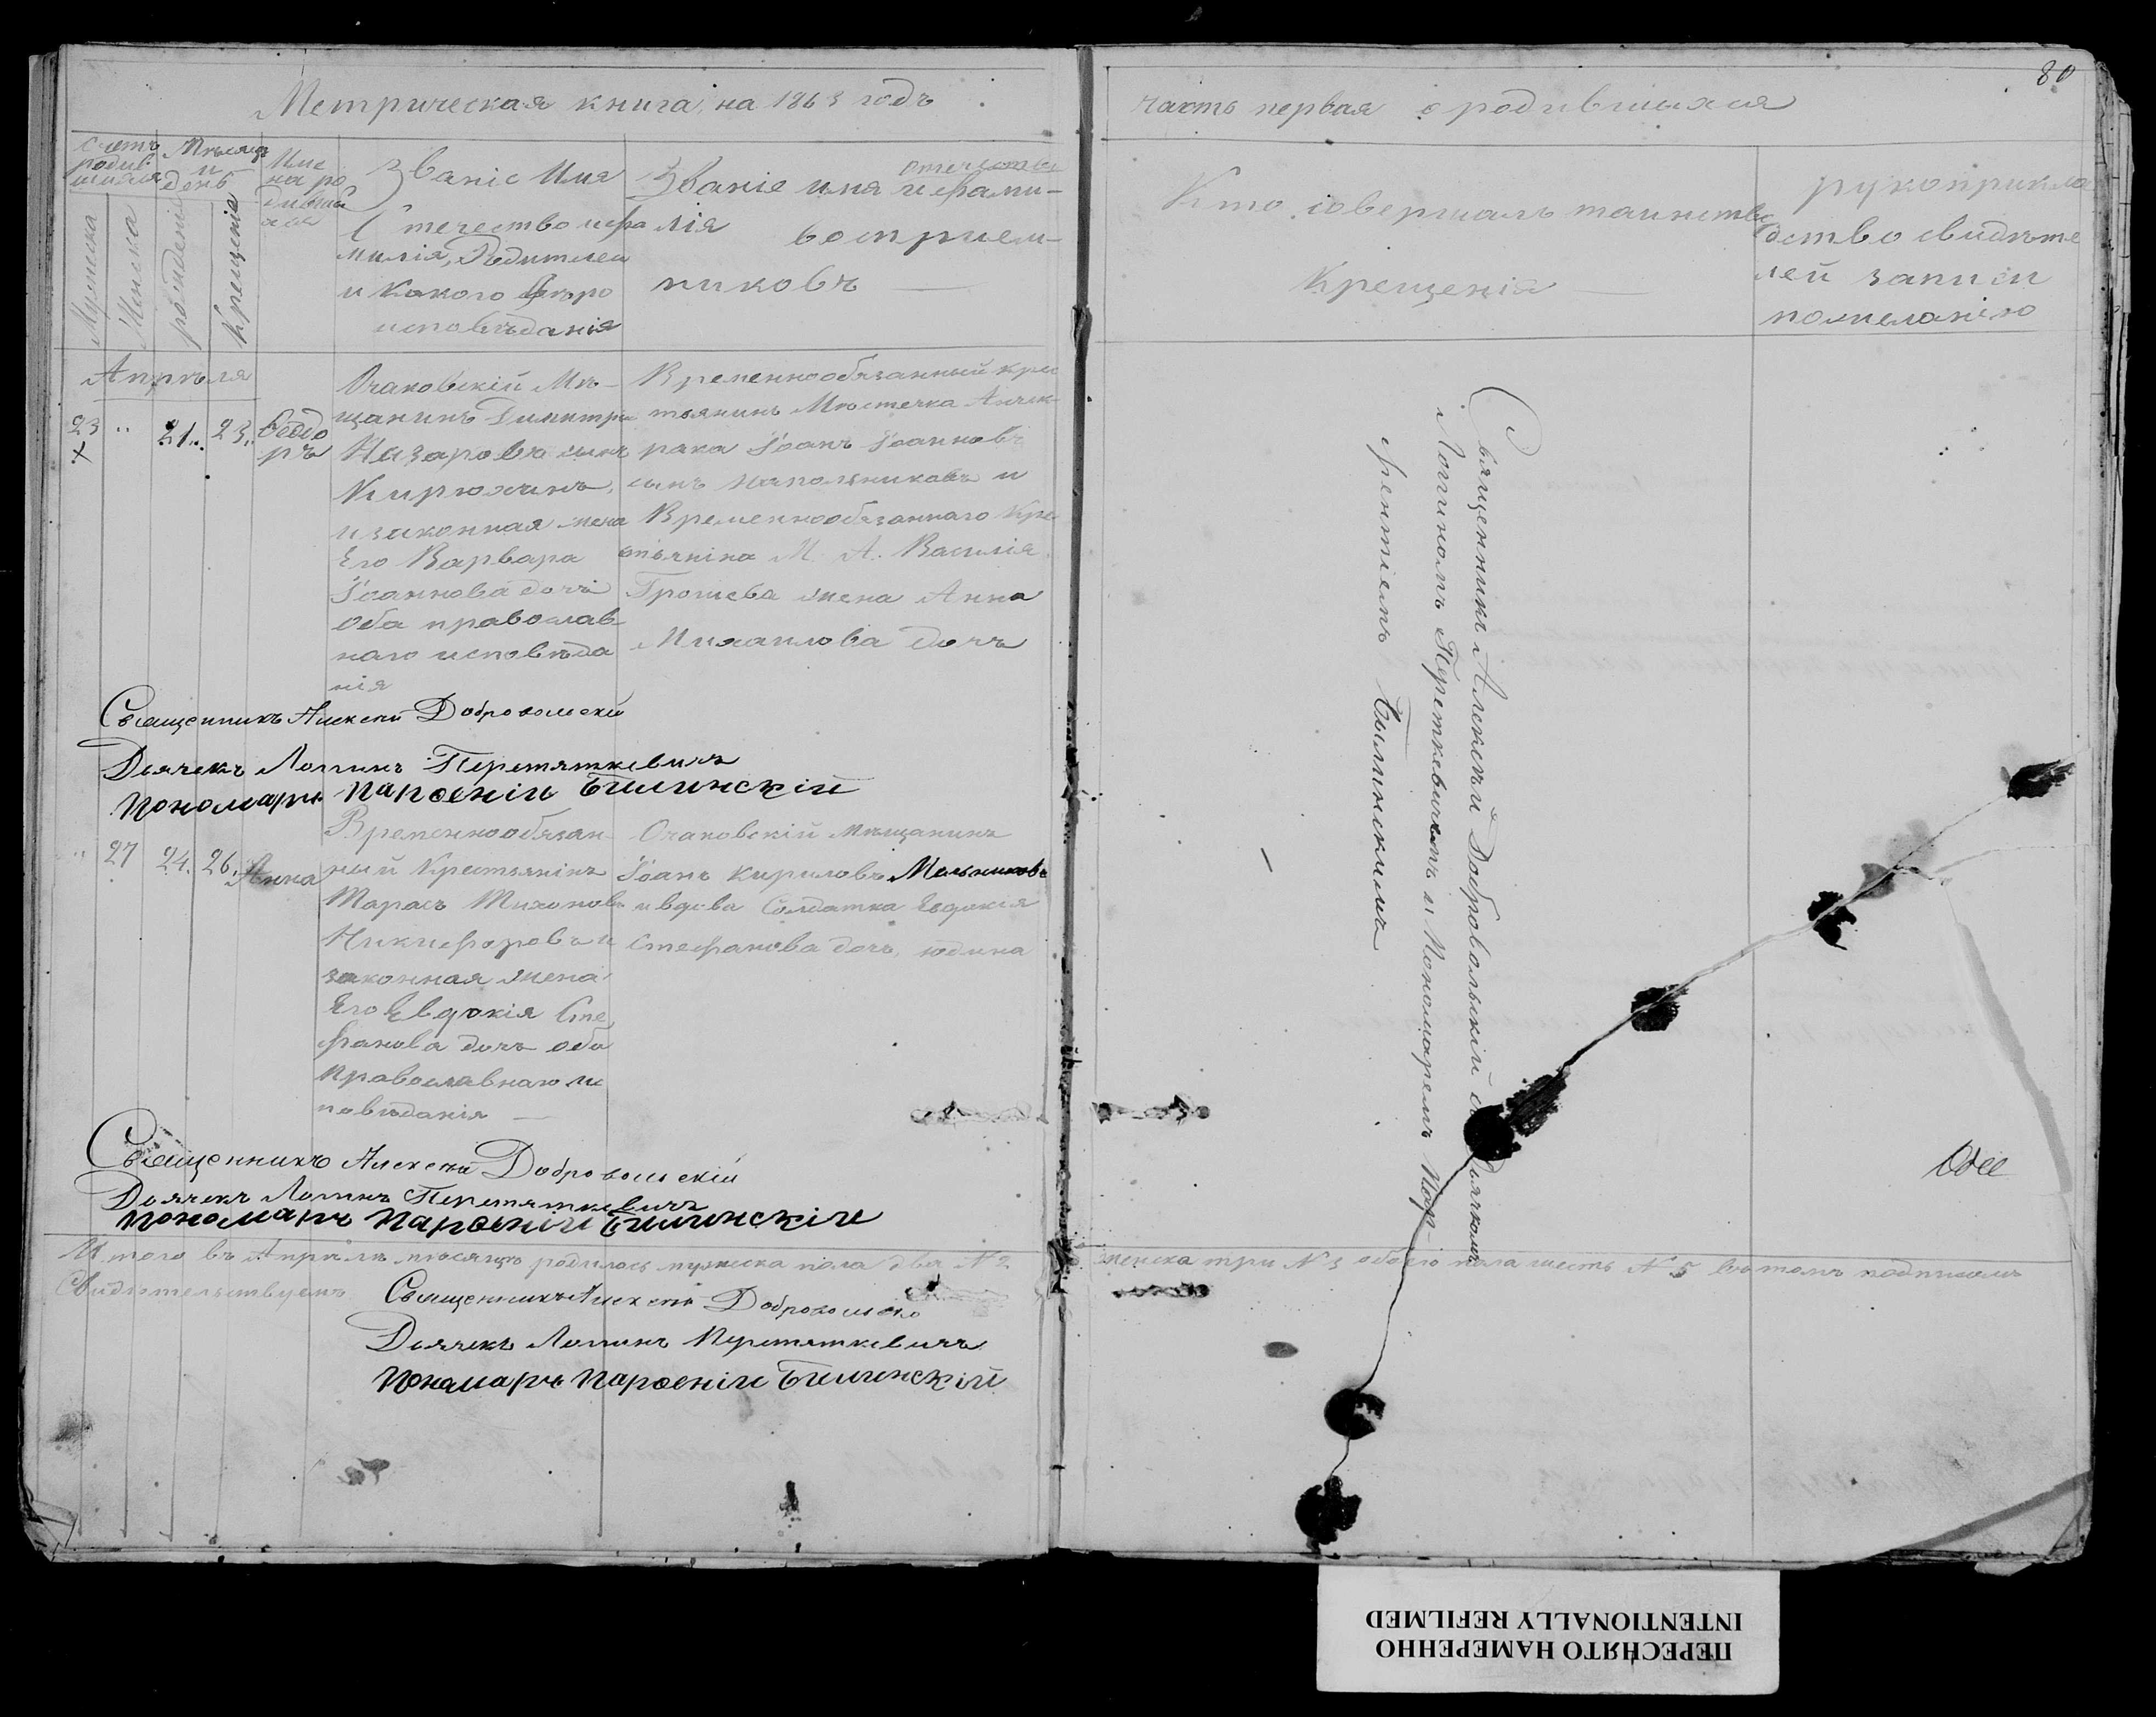 Метрическая книга, на 1863 годъ
часть первая о родившихся
80
Счетъ родив шихся
Мѣсяцъ и день
Имена родившихся
Званіе Имя Отчество и фамилія, Родителей и Какого Вѣроисповѣданія
Званіе имя отчество и фамилія воспріемниковъ
Кто совершалъ таинство Крещенія
рукоприкладство свидѣтелей записи по желанію
Мужеска
Женска
рожденія
Крещенія
Апрѣля
23 " 21. 23. Ѳеодоръ
Очаковскій Мѣ-
щанинъ Димитри
Назаровъ сынъ
Кирюхинъ,
и законная жена
Его Варвара
Іоаннова дочь
Оба православ-
наго исповѣда
нія
Временнообязанный кре
стьянинъ Мѣстечка
Іоанъ Іоанновъ
сынъ и
Временнообязаннаго Кре
стьянина М. А. Василія
Грошева жена Анна
Михаилова дочь
Священникъ Алексѣй Добровольскій
Дьячекъ Логинъ Перетяткевичъ
Пономарь Парѳеній Билинскій
" 27 24. 26. Анна
Временнообязан
ный Крестьянинъ
Тарасъ Тихоновъ
Никифоровъ и
законная жена
Его Евдокія Сте
фанова дочь оба
Православнаго ис
повѣданія
Очаковскій мѣщанинъ
Іоанъ Кириловъ Мельниковъ
и вдова Солдатка Евдокія
Стефанова дочь, Юдина
Священникъ Алексѣй Добровольскій
Дьячекъ Логинъ Перетяткевичъ
Пономарь Парѳеній Билинскій
Священникъ Алексѣй Добровольскій съ Дьячкомъ
Логиномъ Переткевичемъ и Пономаремъ Пар-
ѳеніемъ Билинскимъ
Итого въ Апрѣлѣ мѣсяцѣ родилось мужеска пола два № 2
женска три № 3 обоего пола шесть № 5 въ томъ подписомъ
Свидѣтельствуемъ
Священникъ Алексѣй Добровольскій
Дьячекъ Логинъ Перетяткевичъ
Пономарь Парѳеній Билинскій
ПЕРЕСНЯТО НАМЕРЕННО
INTENTIONALLY REFILMED